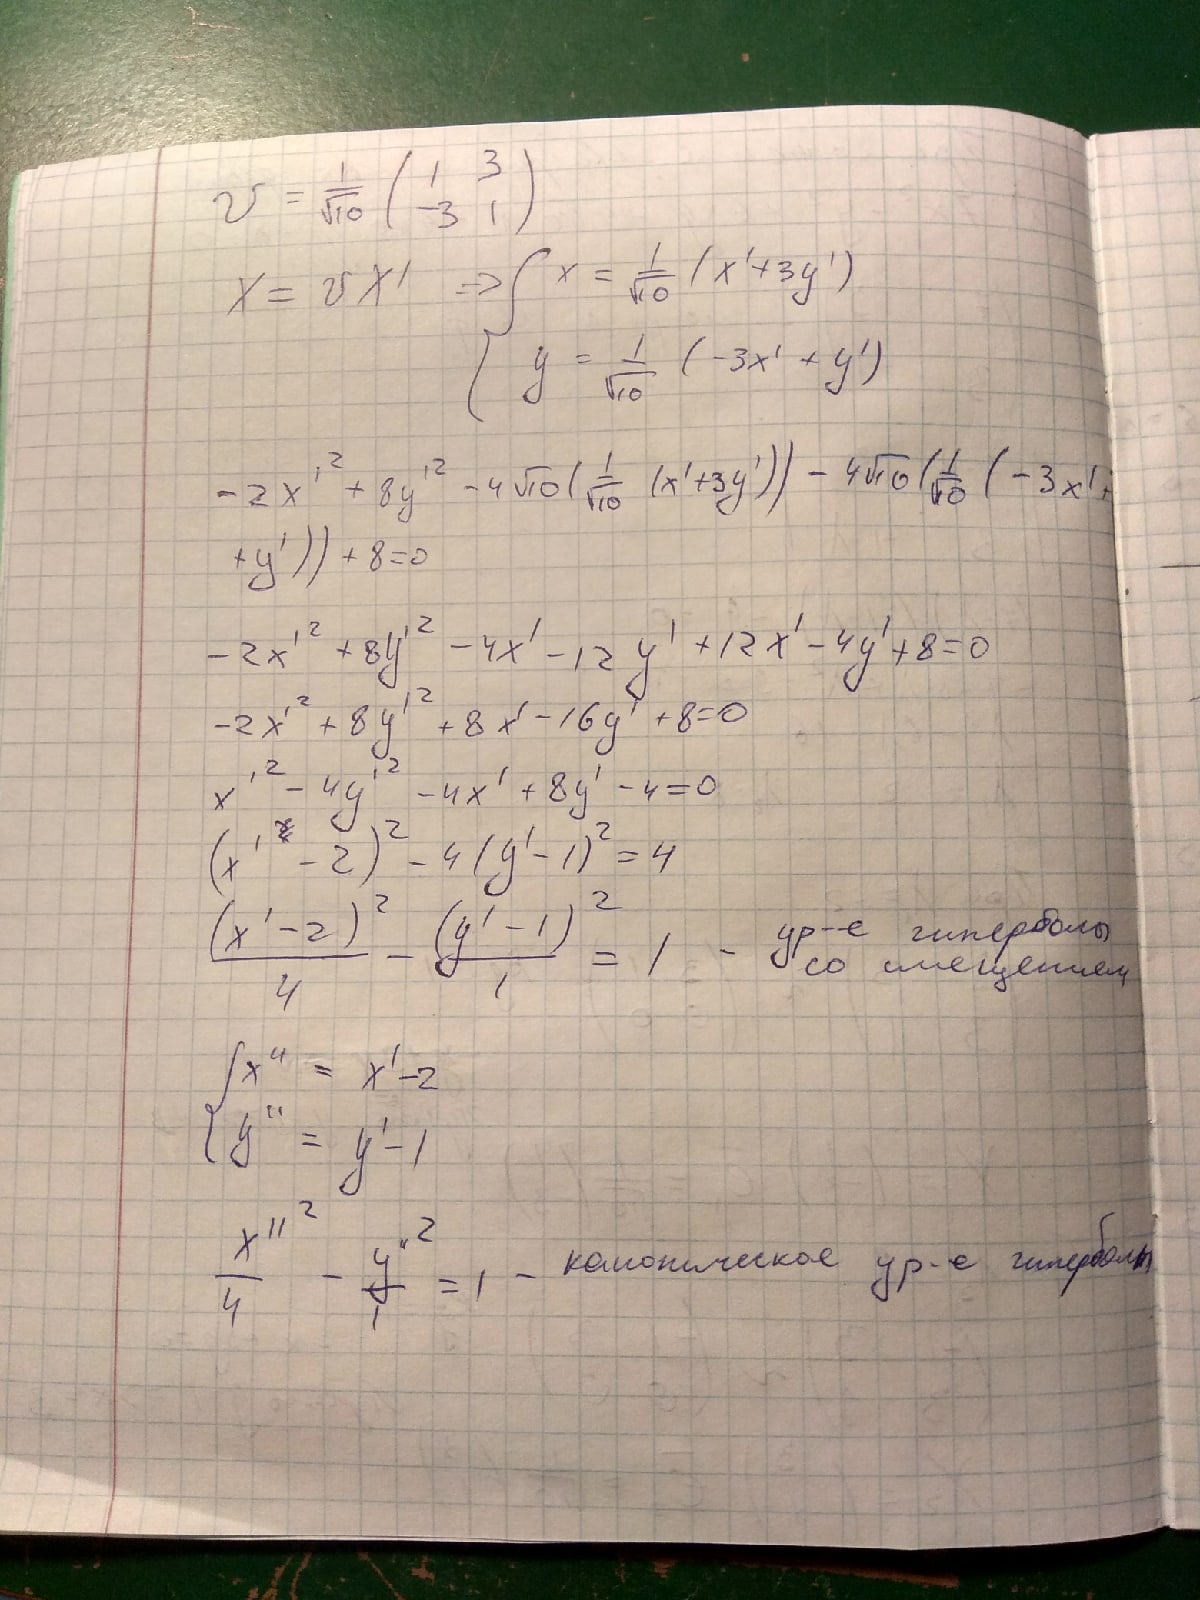 v = 1/√10 ( 1 3
-3 1 )
X = vX' => { x = 1/√10 (x'+3y')
y = 1/√10 (-3x' + y')
-2x'² + 8y'² - 4√10(1/√10 (x'+3y')) - 4√10(1/√10 (-3x'+
+y')) + 8=0
-2x'² + 8y'² - 4x' - 12y' + 12x' - 4y' + 8=0
-2x'² + 8y'² + 8x' - 16y' + 8=0
x'² - 4y'² - 4x' + 8y' - 4=0
(x' - 2)² - 4(y'-1)² = 4
(x'-2)²/4 - (y'-1)²/1 = 1 - ур-е гиперболы
со смещением
{ x'' = x'-2
y'' = y'-1
x''²/4 - y''²/1 = 1 - каноническое ур-е гиперболы